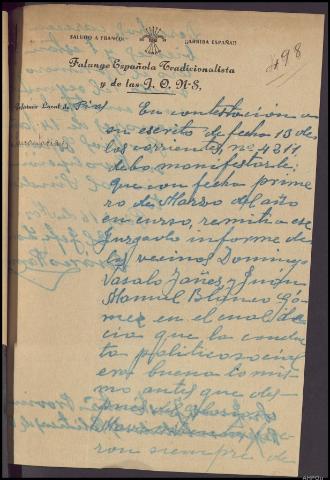 SALUDO A FRANCO!
¡ARRIBA ESPAÑA!!
498
Falange Española Tradicionalista
y de las J. O. N-S,
Jefatura Local de
En contestación a
su escrito de fecha 10 de
los corrientes, nº 4311
debo manifestarle:
que con fecha prime
ro de Marzo del año
en curso, remití a ese
Juzgado informe de
los vecinos Domingo
Vasalo Yañez y Juan
Manuel Blanco Gó
mez en el cual de
cia que la conduc
ta politicosocial
era buena lo mis
mo antes que des
ron siempre de